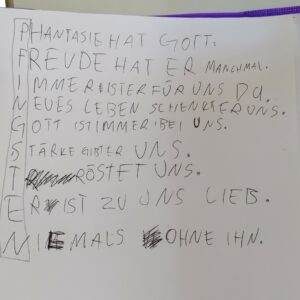 PHANTASIE HAT GOTT.
FREUDE HAT ER MANCHMAL.
IMMER ISTER FÜR UNS DA.
NEUES LEBEN SCHENKT ER UNS.
GOTT IST IMMER BEI UNS.
STÄRKE GIBT ER UNS.
TRÖSTET UNS.
ER IST ZU UNS LIEB.
NIEMALS OHNE IHN.